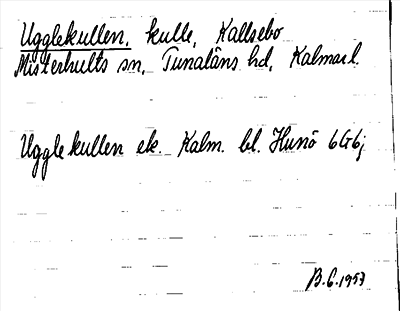 Ugglekullen, kulle, Kallsebo
Misterhults sn, Tunaläns hd, Kalmar l.
Ugglekullen ek. Kalm. bl. Hunö 6G6j
B.G. 1957